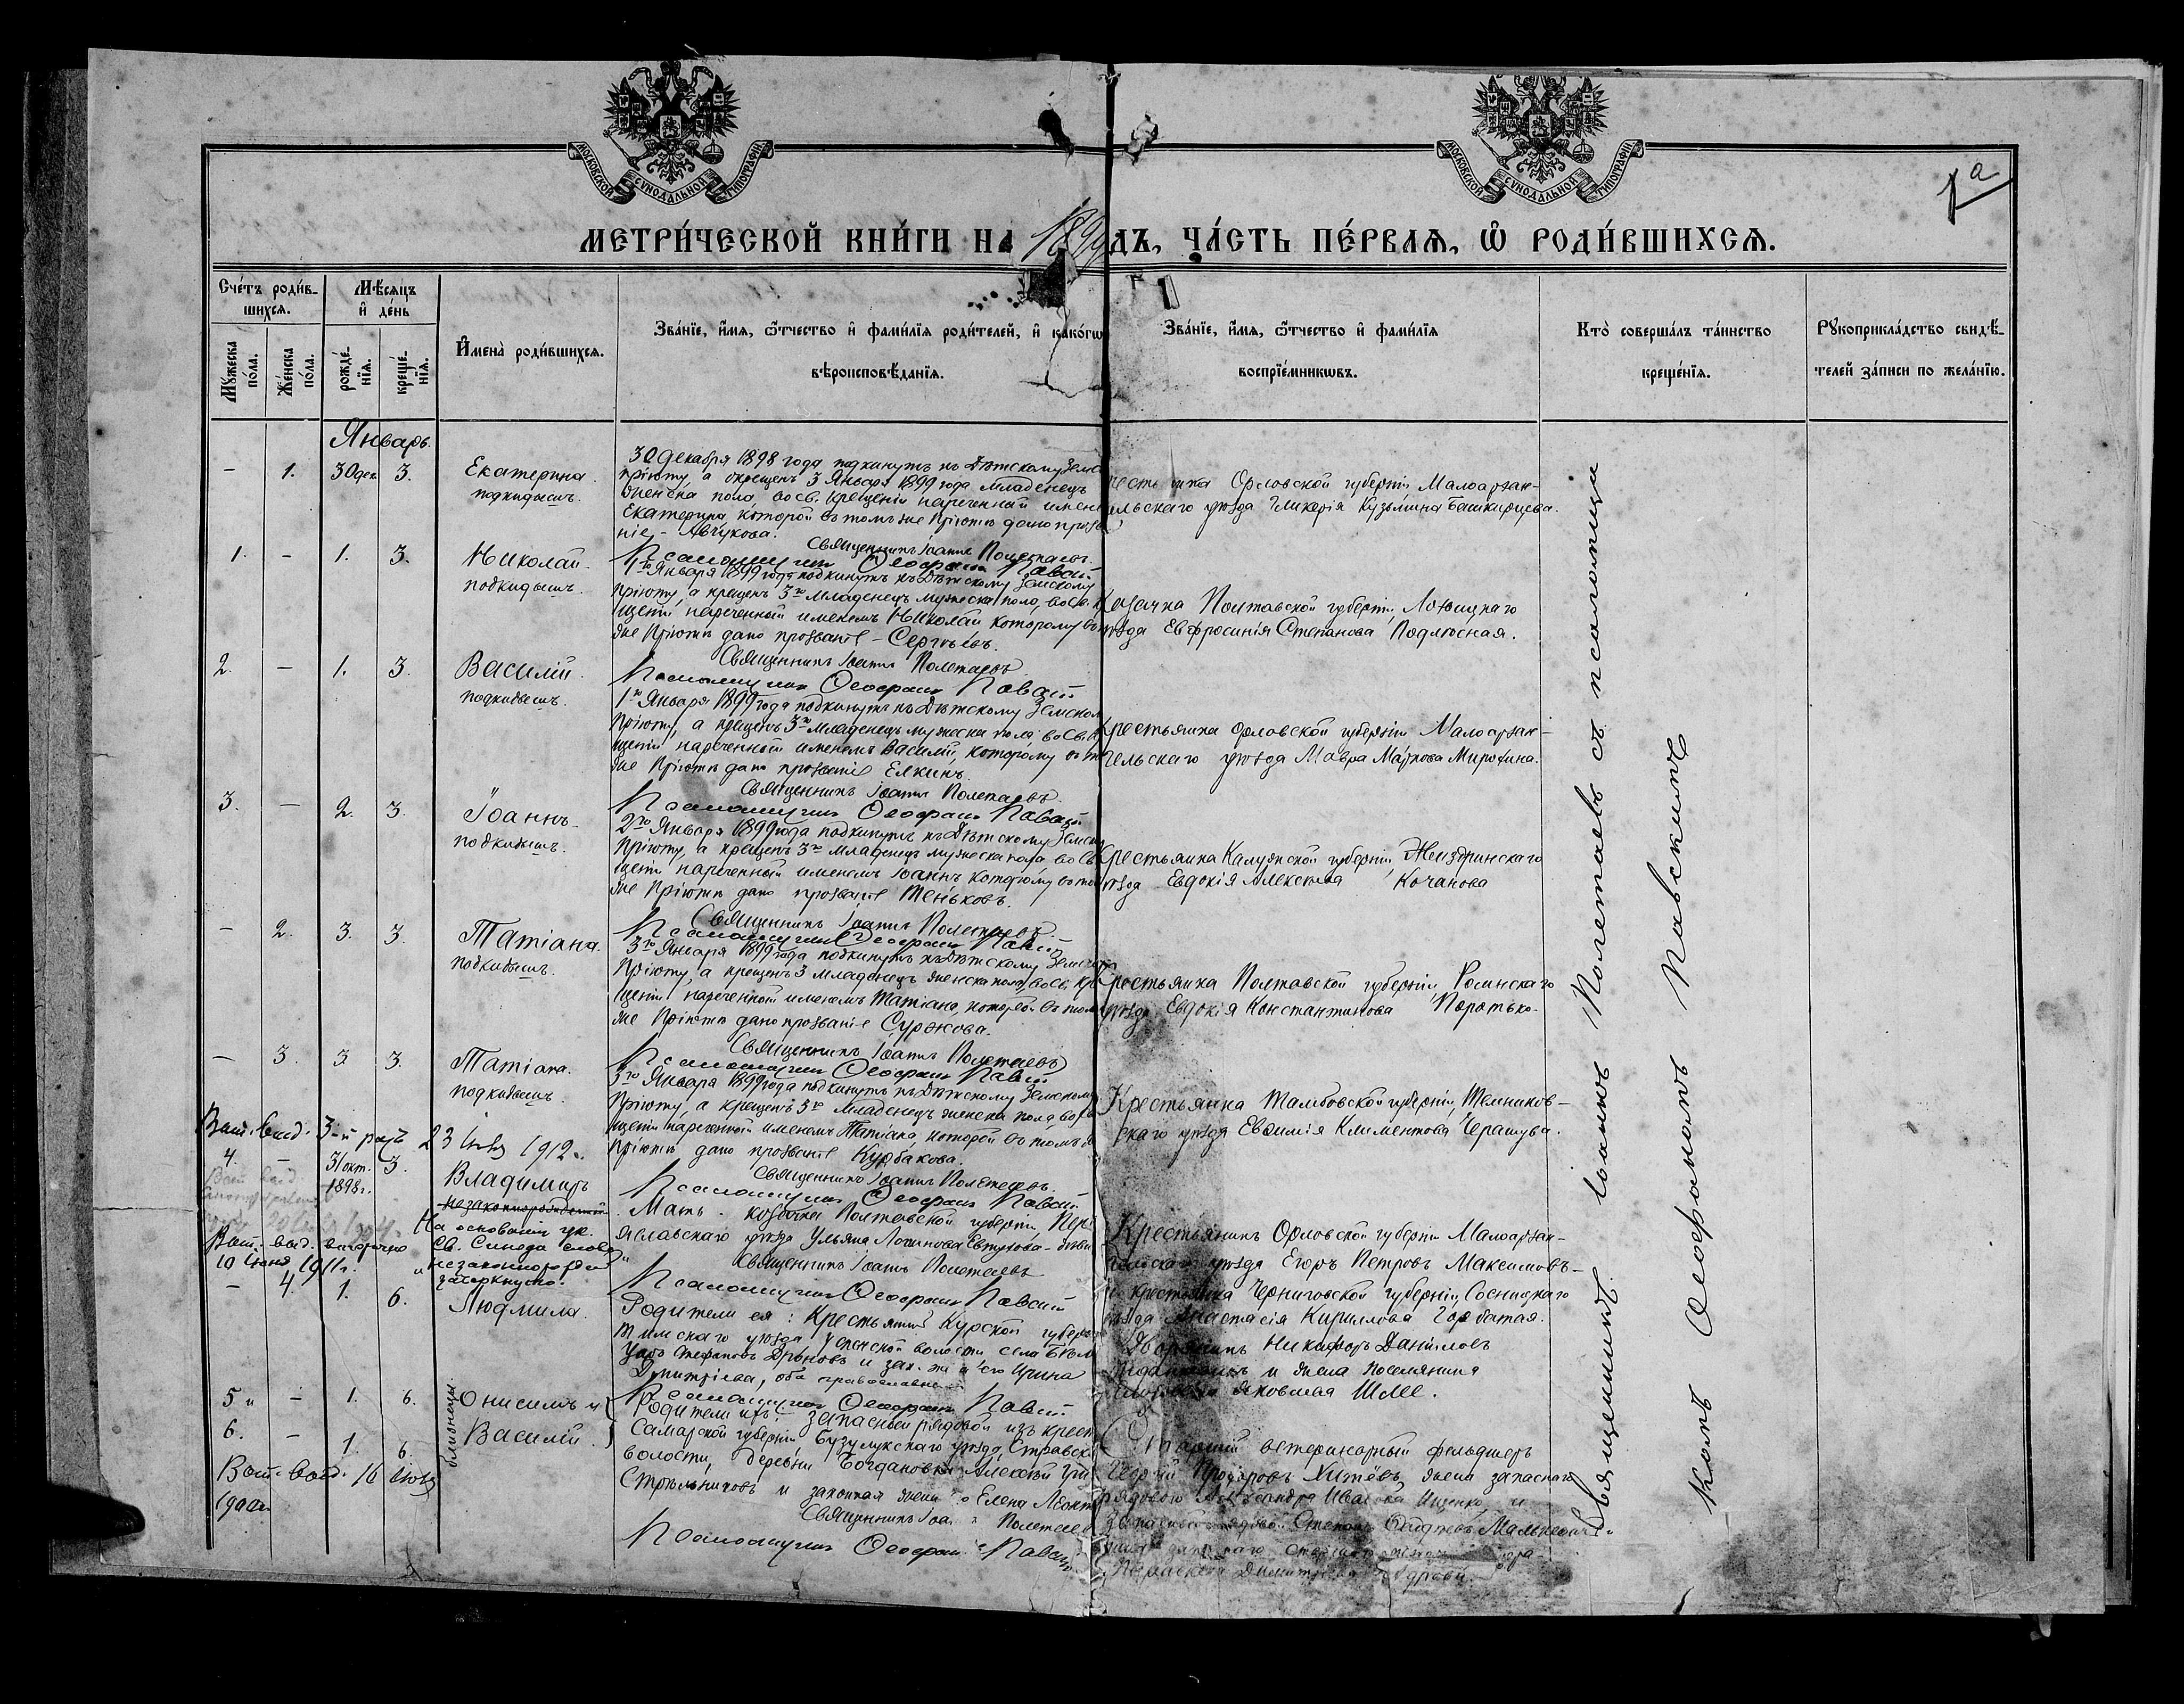 МОСКОВСКОЙ СѴНОДАЛЬНОЙ ТИПОГРАФІИ
МОСКОВСКОЙ СѴНОДАЛЬНОЙ ТИПОГРАФІИ
1а
МЕТРИ́ЧЕСКОЙ КНИ́ГИ НА 1899 ДЪ, ЧА́СТЬ ПЕ́РВАЯ, Ѡ҆ РОДИ́ВШИХСЯ.
Сче́тъ роди́в-
шихся.
Мѣ́сяцъ
и҆ де́нь
Мꙋ́жеска по́ла.
Же́нска по́ла.
рожде́-нїя.
креще́-нїя.
И҆мена̀ роди́вшихся.
Зва́нїе, и҆́мя, ѻ҆́тчество и҆ фами́лїя роди́телей, и҆ како́гѡ
вѣроисповѣ́данїя.
Зва́нїе, и҆́мя, ѻ҆́тчество и҆ фами́лїя
воспрїе́мникѡвъ.
Кто̀ соверша́лъ та́инство
креще́нїя.
Рꙋкоприкла́дство свидѣ́-
телей за́писи по жела́нїю.
Январь.
- 1. 30 дек. 3. Екатерина.
подкидышъ.
30 декабря 1898 года подкинутъ къ Дѣтскому Земс
Пріюту, а окрещенъ 3 Января 1899 года младенецъ
женска пола, во св. крещеніи нареченный имен
Екатерина, которой въ томъ же Пріютѣ дано прозв
ніе -
Священникъ Іоаннъ Полетаевъ.
Псаломщикъ Ѳеофанъ Павскій
Орловской губерніи Малоархан-
ельскаго уѣзда Гликерія Кузьмина Башкирцева.
1. - 1. 3. Николай
подкидышъ.
1го Января 1899 года подкинутъ къ Дѣтскому Земскому
Пріюту, а крещенъ 3го младенецъ мужеска пола, во св. к
щеніи нареченный именемъ Николай, которому въ
же Пріютѣ дано прозваніе - Сергѣевъ.
Священникъ Іоаннъ Полетаевъ
Псаломщикъ Ѳеофанъ Павскій
Казачка Полтавской губерніи, Лохвицкаго
уѣзда Евфросинія Степанова Подлѣсная.
2. - 1. 3. Василій.
подкидышъ.
1го Января 1899 года подкинутъ къ Дѣтскому Земском
Пріюту, а крещенъ 3го младенецъ мужеска пола во св. к
щеніи нареченный именемъ Василій, которому въ т
же Пріютѣ дано прозваніе Елкинъ.
Священникъ Іоаннъ Полетаевъ.
Псаломщикъ Ѳеофанъ Павскій
Крестьянка Орловской губерніи Малоархан-
гельскаго уѣзда Мавра Маркова Мирохина.
3. - 2. 3. Іоаннъ
подкидышъ.
2го Января 1899 года подкинутъ къ Дѣтскому Земск
Пріюту, а крещенъ 3го младенецъ мужеска пола во св
щеніи нареченный именемъ Іоаннъ которому въ том
же Пріютѣ дано прозваніе Теньковъ.
Священникъ Іоаннъ Полетаевъ.
Псаломщикъ Ѳеофанъ Павскій
Крестьянка Калужской губерніи, Жиздринскаго
уѣзда Евдокія Алексѣева Кочанова
- 2. 3. 3. Татіана.
подкидышъ.
3го Января 1899 года подкинутъ къ Дѣтскому Земском
Пріюту, а крещенъ 3 младенецъ женска пола, во св. кр
щеніи нареченный именемъ Татіана, которой въ том
же Пріютѣ дано прозваніе Суржова.
Священникъ Іоаннъ Полетаевъ
Псаломщикъ Ѳеофанъ Павскій
Крестьянка Полтавской губерніи Роменскаго
уѣзда Евдокія Константинова Поротько.
- 3. 3 3. Татіана.
подкидышъ.
3го Января 1899 года подкинутъ къ Дѣтскому Земскому
Пріюту, а крещенъ 3го младенецъ женска пола, во св
щеніи нареченный именемъ Татіана, которой въ томъ ж
Пріютѣ дано прозваніе Курбакова.
Священникъ Іоаннъ Полетаевъ.
Псаломщикъ Ѳеофанъ Павскій
Крестьянка Тамбовской губерніи, Темников-
скаго уѣзда Евѳимія Климентова
Вып. выд. 3-й разъ 23 1912.
4. - 31 окт. 1898 г. 3. Владиміръ
незаконнорожденный
На основаніи ук.
Св. Синода слово
"незаконнорожд"
зачеркнуто.
Вып. выд. вторично
10 1911 г.
Мать - козачка Полтавской губерніи, Пере
яславскаго уѣзда Ульяна
Священникъ Іоаннъ Полетаевъ
Псаломщикъ Ѳеофанъ Павскій
Крестьянинъ Орловской губерніи Малоархан-
гельскаго уѣзда Егоръ Петровъ Максимовъ
и крестьянка Черниговской губерніи, Сосницкаго
уѣзда Анастасія Кириллова Горбатая.
- 4. 1. 6. Людмила.
Родители ея: Крестьянинъ Курской губерн
Тимскаго уѣзда Успенской волости села
и зак. жена его Ирина
Дмитріева, оба православные
Псаломщикъ Ѳеофанъ Павскій
Дворянинъ Никифоръ Даниловъ
и жена поселянина
Яковлева Шлее.
5 и - 1. 6. Онисимъ и
6. - 1. 6. Василій.
близнецы.
Вып. выд. 16
Родители ихъ: запасный рядовой изъ крест
Самарской губерніи, Бузулукскаго уѣзда,
волости, деревни Богдановки Алексѣй
Стрѣльниковъ и законная жена его Елена Леонт
Священникъ Іоаннъ Полетаев
Псаломщикъ Ѳеофанъ Павскій
Старшій ветеринарный фельдшеръ
Георгій Прохоровъ жена запаснаго
рядового Александра Иванова Ищенко, и
запасный рядовой Степанъ
Священникъ Іоаннъ Полетаевъ съ псаломщи
комъ Ѳеофаномъ Павскимъ